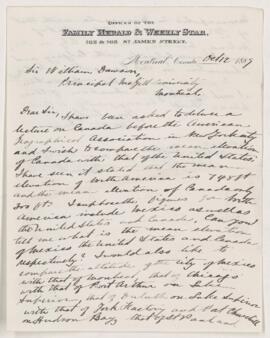 OFFICES OF THE
FAMILY HERALD & WEEKLY STAR,
162 & 163 ST JAMES STREET.
Montreal, Canada Oct 12 1889
Sir William Dawson,
Principal McGill University
Montreal.
Dear Sir, I have been asked to deliver a
lecture on Canada before the American
Geographical Association in New York city
and I wish to compare the mean elevation
of Canada with that of the United States
I have seen it stated that the mean
elevation of North America is 748 ft
and the mean elevation of Canada only
300 ft. I suppose the figures for North
America include Mexico as well as
the United States and Canada. Can you
tell me what is the mean elevation
of Mexico the United States and Canada
respectively? I would also like to
compare the altitude of the city of Mexico
with that of Montreal, that of Chicago
with that of Port Arthur on Lake
Superior, that of Duluth on Lake Superior
with that of York Factory and Fort Churchill
on Hudson Bay, that of St Paul and